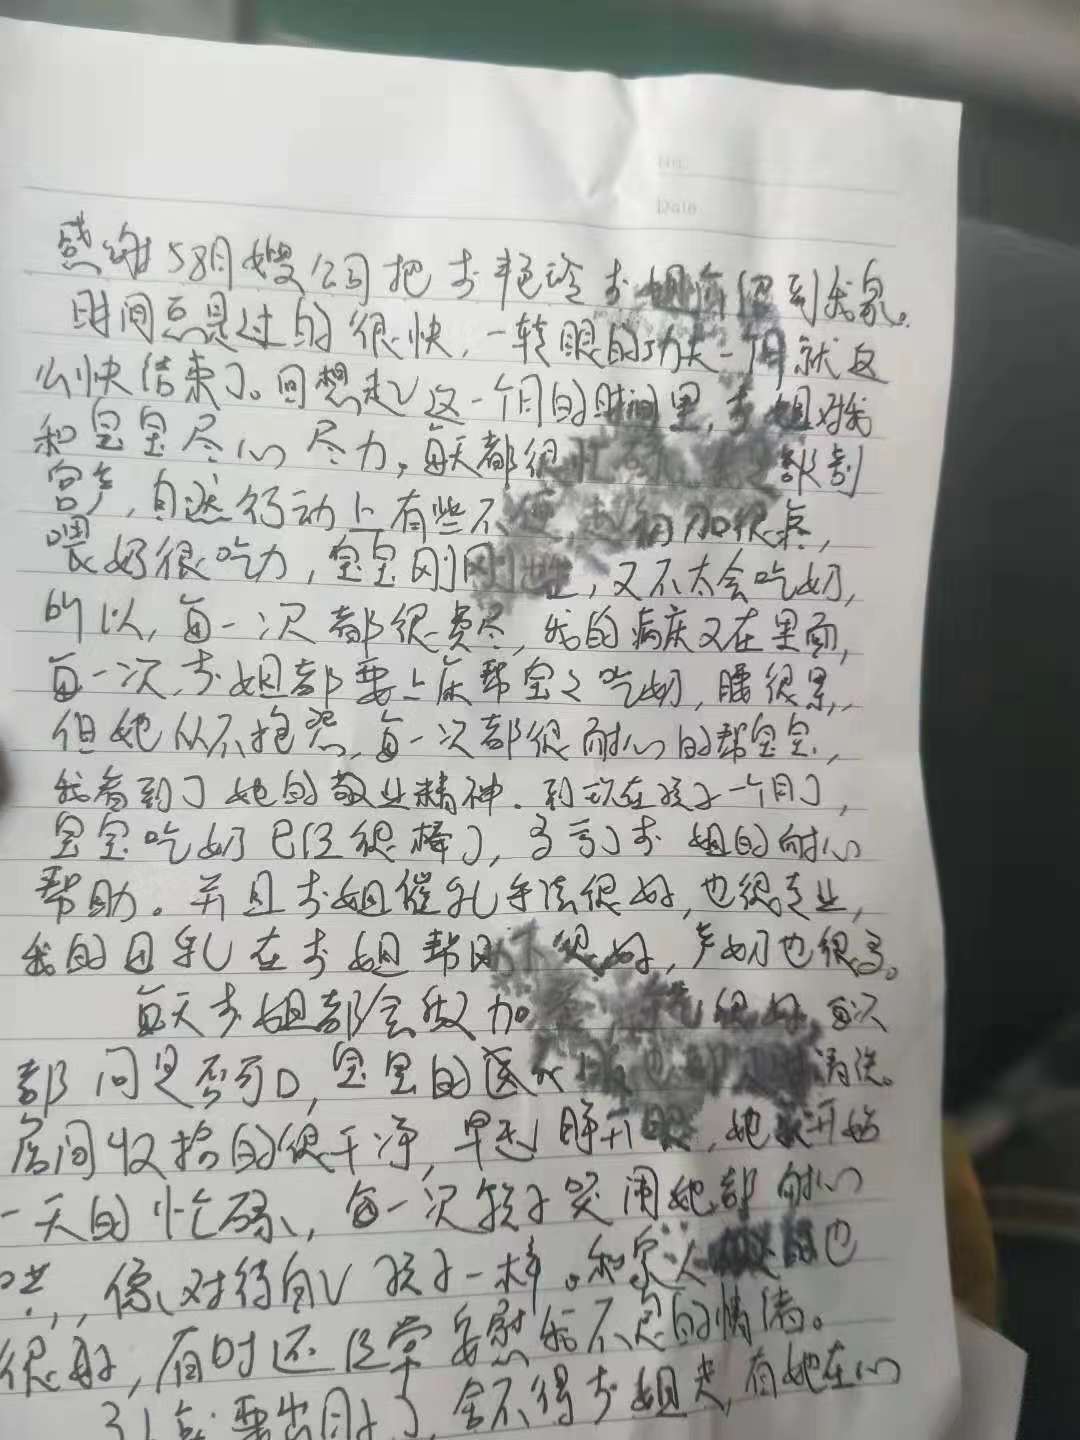 No.
Date
感谢58月嫂公司把李艳玲李姐介绍到我家。
时间总是过的很快,一转眼的功夫一个月就这
么快结束了。回想起这一个月的时间里,李姐对我
和宝宝尽心尽力,每天都很 都剖
宫产,自然行动上有些不便, 加很疼,
喂奶很吃力,宝宝刚刚出生,又不太会吃奶,
所以,每一次都很费尽,我的病床又在里面,
每一次李姐都要上床帮宝宝吃奶,腰很累,
但她从不抱怨,每一次都很耐心的帮宝宝,
我看到了她的敬业精神.到现在孩子一个月了,
宝宝吃奶已经很棒了,多亏了李姐的耐心
帮助。并且李姐催乳手法很好,也很专业,
我的母乳在李姐帮助下很好,产奶也很多。
每天李姐都会做加 很好,每次
都问是否可口,宝宝的医 清洗。
房间收拾的很干净,早起睁开眼,她就开始
一天的忙碌,每一次孩子哭闹她都耐心
哄,像对待自己孩子一样。和家人 也
很好,有时还经常安慰我不良的情绪。
要出月子了,舍不得李姐走,有她在心